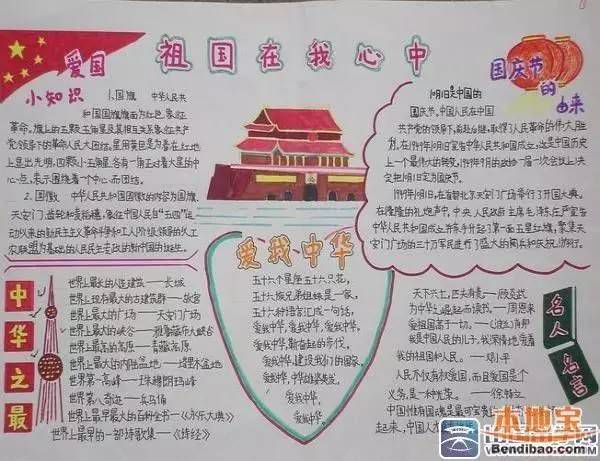 祖国在我心中
爱国
小知识
1.国旗 中华人民共
和国国旗旗面为红色,象征
革命。旗上的五颗五角星及其相互关系象征共产
党领导下的革命人民大团结。星用黄色是为着在红地
上显出光明,四颗小五角星各有一角正对着大星的中
心点,表示围绕着一个中心而团结。
2.国徽 中华人民共和国国徽的内容为国旗、
天安门、齿轮和麦稻穗,象征中国人民自“五四”运
动以来的新民主主义革命斗争和工人阶级领导的以工
农联盟为基础的人民民主专政的新中国的诞生。
国庆节
的
由来
10月1日是中国的
国庆节。中国人民在中国
共产党的领导下,前赴后继,取得了人民革命的伟大胜
利。在1949年10月1日宣告中华人民共和国成立,这是中国历史
上一个最伟大的转变。
定把10月1日定为国庆节。
1949年10月1日,在首都北京天安门广场举行了开国大典。
在隆隆的礼炮声中,中央人民政府主席毛泽东庄严宣告
中华人民共和国成立并亲手升起了第一面五星红旗。聚集天
安门广场的三十万军民进行了盛大的阅兵和庆祝游行。
中华之最
世界上最长的人造建筑——长城
世界上现存最大的古建筑群——故宫
世界上最大的广场——天安门广场
世界上最大的峡谷——雅鲁藏布大峡谷
世界上最高的高原——青藏高原
世界上最大的内陆盆地——塔里木盆地
世界第一高峰——珠穆朗玛峰
世界第一人奇迹——兵马俑
世界上最早最大的百科全书——《永乐大典》
世界上最早的一部诗歌集——《诗经》
爱我中华
五十六个星座五十六只花,
五十六族兄弟姐妹是一家,
五十六种语言汇成一句话,
爱我中华,爱我中华,爱我中华,
爱我中华,奋起的步伐,
爱我中华,建设我们的国家,
爱我中华,中华雄姿英发,
爱我中华,
爱我中华!
名人
名言
天下兴亡,匹夫有责——顾炎武
为中华之崛起而读书——周恩来
爱祖国高于一切。——
是中国人民的儿子,我深情地爱着
我的祖国和人民。——邓小平
人民不仅有权爱国,而且爱国是个
义务,是一种光荣。——徐特立
起来,中国人
本地宝
Bendibao.com